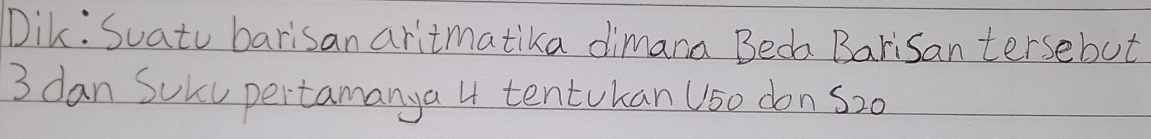 Dik: Suatu barisan aritmatika dimana Beda Barisan tersebut
3 dan Suku pertamanya 4 tentukan U50 dan S20